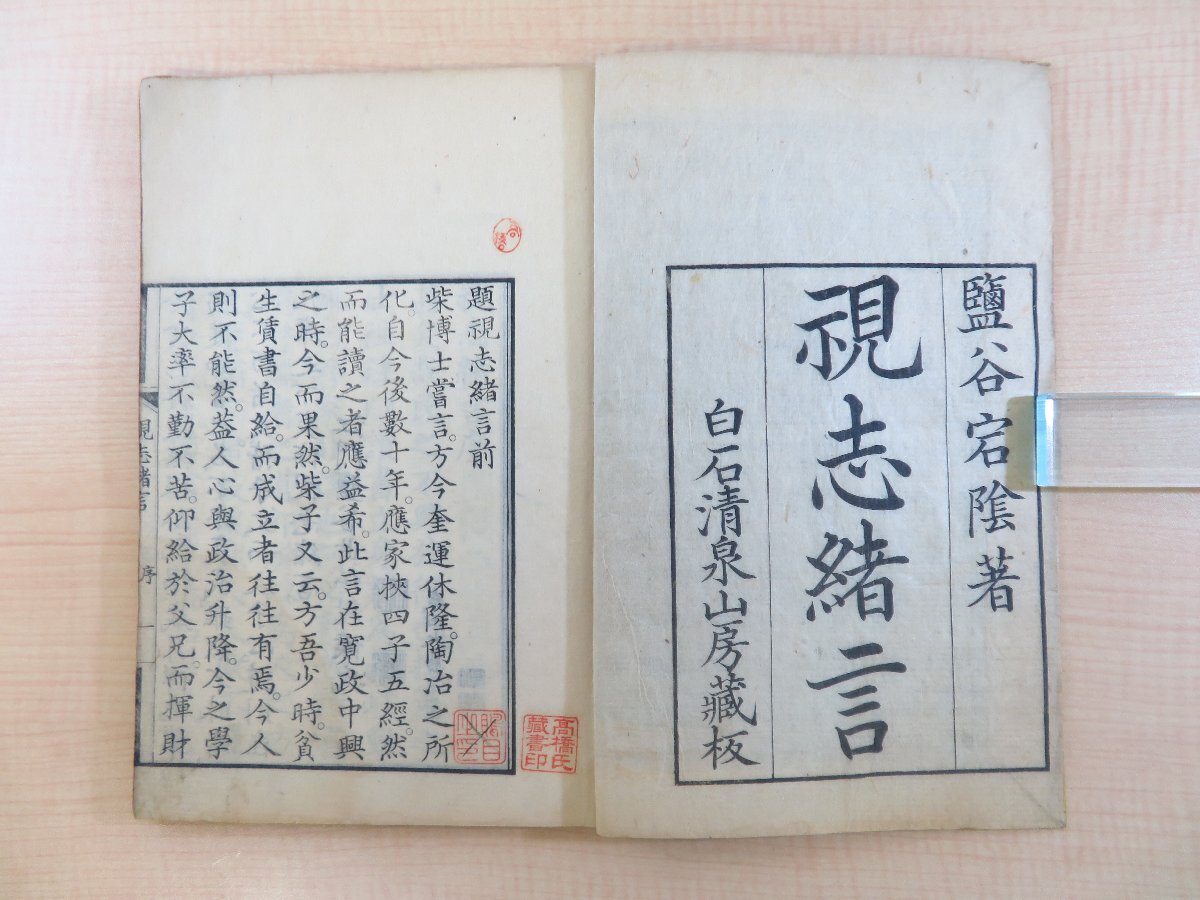 鹽谷宕陰著
視志緒言
白石清泉山房藏板
題視志緒言前
柴博士嘗言。方今奎運休隆。陶冶之所
化。自今後數十年。應家挾四子五經。然
而能讀之者應益希。此言在寬政中興
之時。今而果然。柴子又云。方吾少時。貧
生賃書自給。而成立者往往有焉。今人
則不能然。蓋人心與政治升降。今之學
子大率不勤不苦。仰給於父兄。而揮財
視志緒言
序
一
高橋氏
藏書印